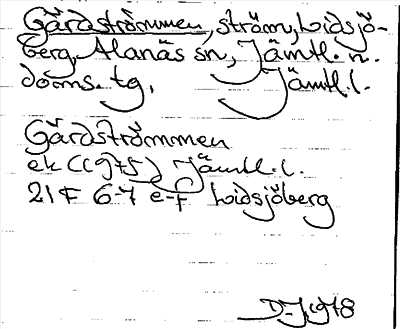 Gärdströmmen, ström, Lidsjö-
berg, Alanäs sn, Jämtl. n.
doms. tg, Jämtl. l.
Gärdströmmen
ek ((1975) Jämtl. l.
21 F 6-7 e-f Lidsjöberg
D-J 1978